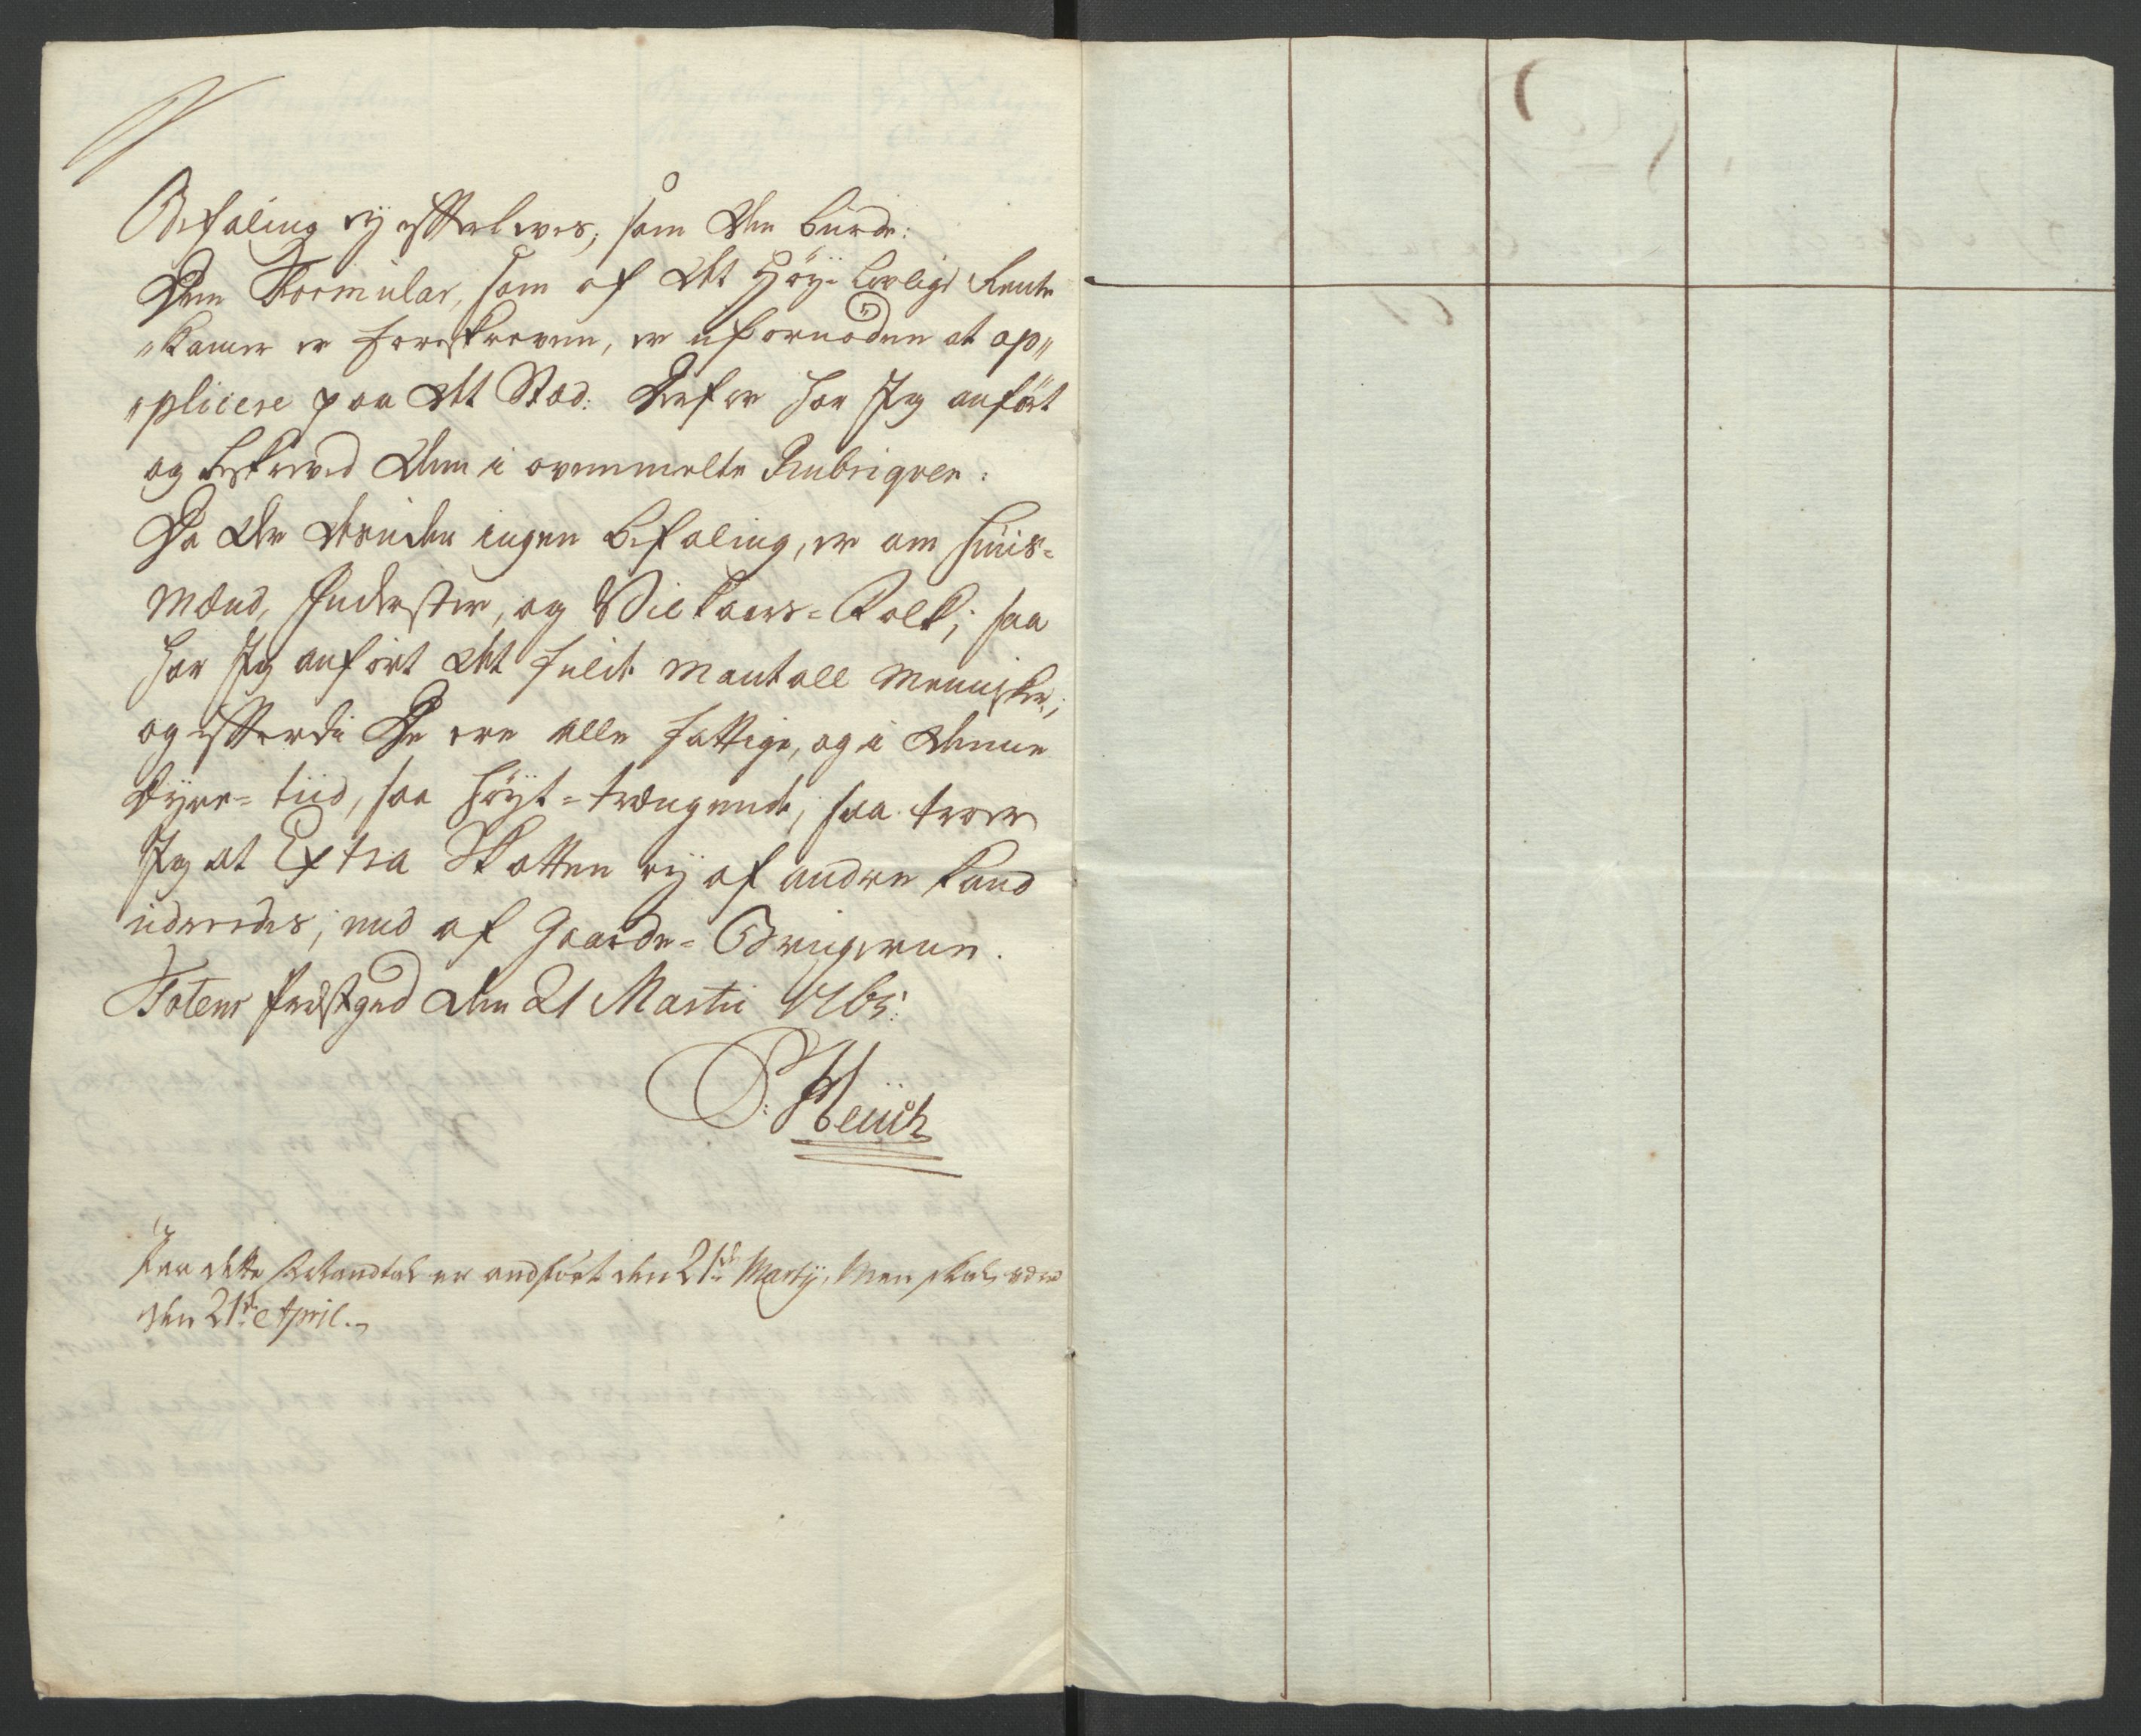 Befaling ey efterleves, som den burde:
Den Formular, som af det Høy-lovlige Rente
„kamer er foreskreven, er ufornøden at ap„
„plicere paa det Stæd: Derfor har Jeg anført
og beskreved dem i ovenmelte Rubriqver:
Da der desuden ingen befaling er om Huus-
mænd, Inderster, og Vilkaars-Folk; saa
har Jeg anført det fulde mantall mennisker;
og efterdi De ere alle fattige, og i denne
dyre-tiid, saa høyt-trængende; saa troer
Jeg at Extra Skatten ey af andre kand
udreedes, end af Gaarde-Brugerne.
Totens Præstgrd den 21 Martii 1765.
P: Heüch
Paa dette Mandtal er andført den 21de Martÿ, Men skal være
den 21de April.